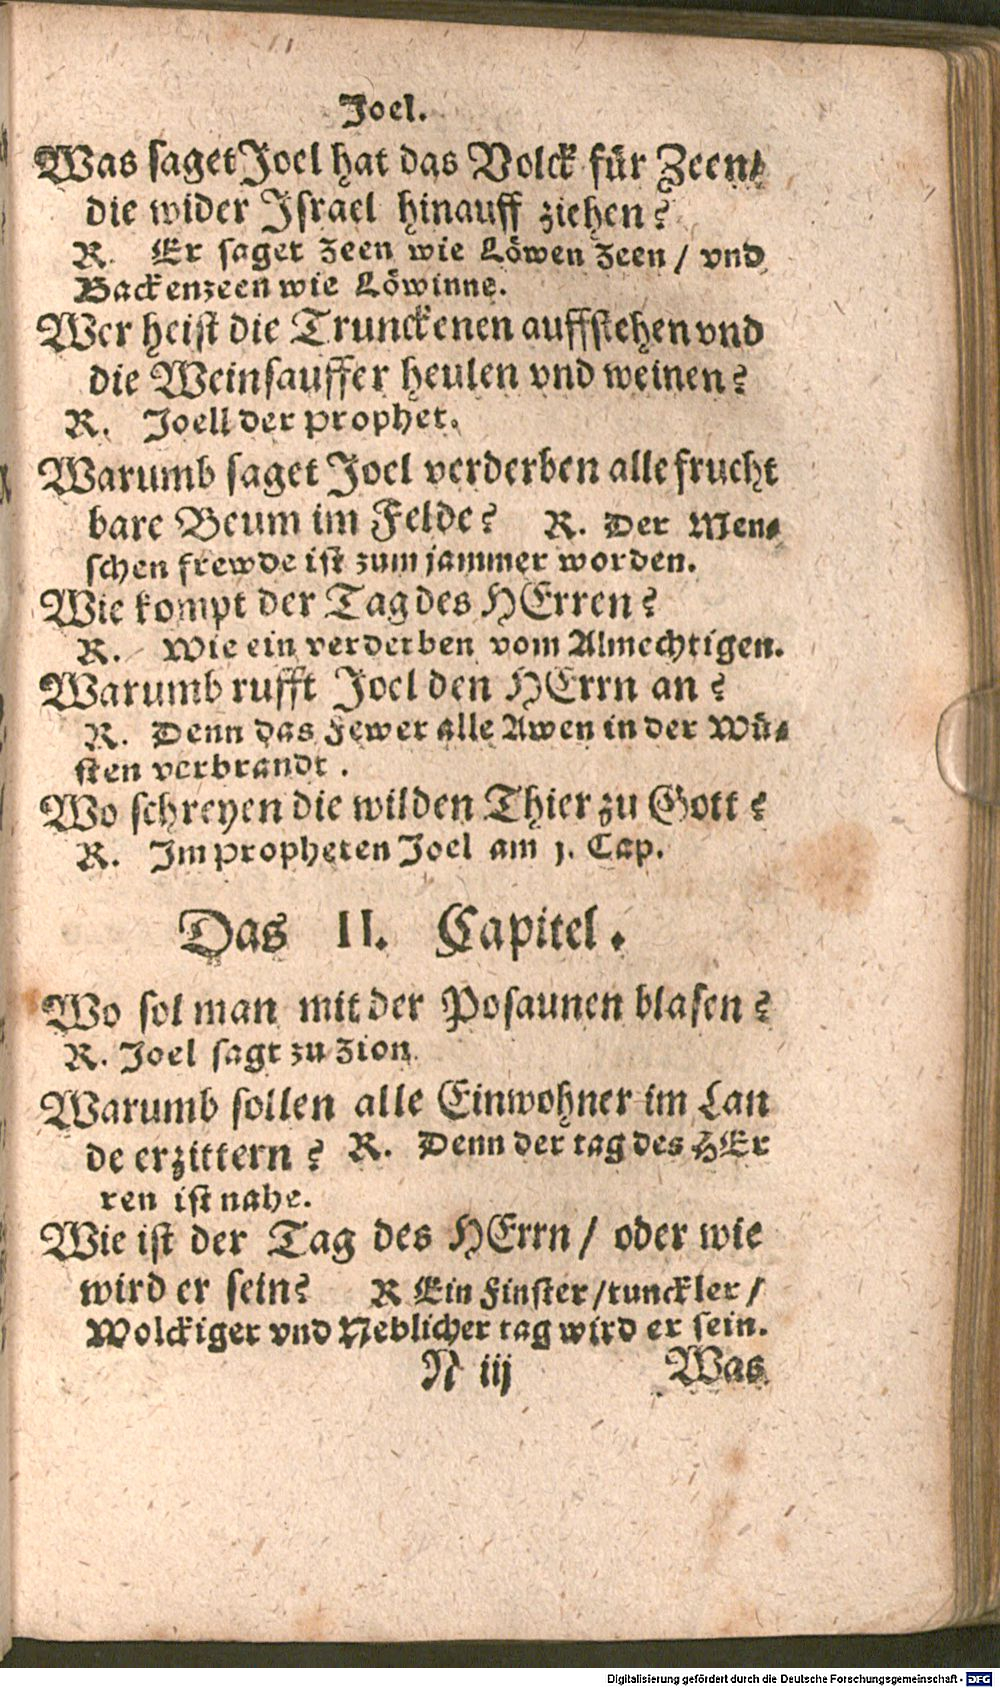 Joel.
Was saget Joel hat das Volck für Zeen/
die wider Israel hinauff ziehen?
R. Er saget Zeen wie Löwen Zeen / vnd
Backenzeen wie Löwinne.
Wer heist die Trunckenen auffstehen vnd
die Weinsauffer heulen vnd weinen?
R. Joell der Prophet.
Warumb saget Joel verderben alle frucht
bare Beum im Felde? R. Der Men-
schen frewde ist zum jammer worden.
Wie kompt der Tag des HErren?
R. Wie ein verderben vom Almechtigen.
Warumb rufft Joel den HErrn an?
R. Denn das Fewer alle Awen in der Wü-
sten verbrandt.
Wo schreyen die wilden Thier zu Gott?
R. Im Propheten Joel am 1. Cap.
Das II. Capitel.
Wo sol man mit der Posaunen blasen?
R. Joel sagt zu Zion
Warumb sollen alle Einwohner im Lan
de erzittern? R. Denn der tag des HEr
ren ist nahe.
Wie ist der Tag des HErrn / oder wie
wird er sein? R Ein Finster / tunckler /
Wolckiger vnd Neblicher tag wird er sein.
N iij Was
Digitalisierung gefördert durch die Deutsche Forschungsgemeinschaft - DFG